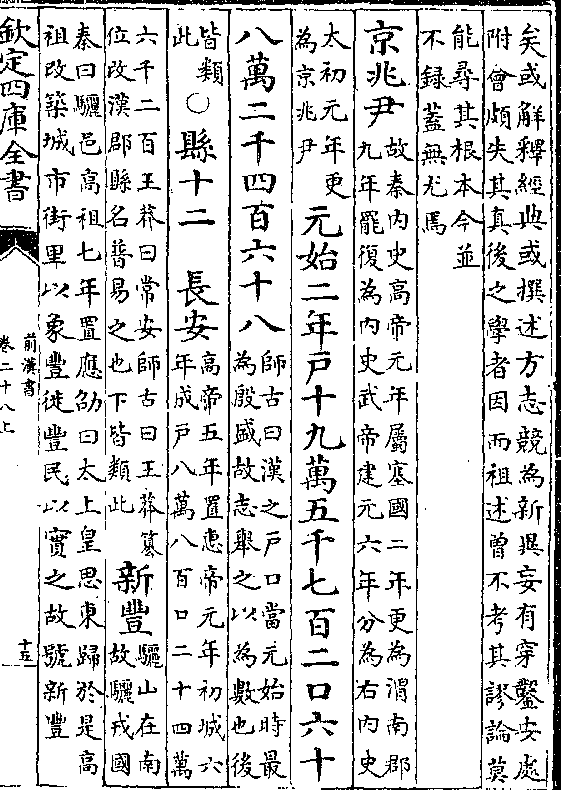 矣或解釋經典或撰述方志競為新異妄有穿鑿安處
附會頗失其真後之學者因而祖述曾不考其謬論莫
能尋其根本今並
不録蓋無尤焉
京兆尹
故秦内史高帝元年屬塞國二年更為渭南郡
九年罷復為内史武帝建元六年分為右内史
太初元年更
為京兆尹
元始二年戸十九萬五千七百二口六十
八萬二千四百六十八
師古曰漢之戸口當元始時最
為殷盛故志舉之以為數也後
皆類
此
○縣十二 長安
高帝五年置惠帝元年初城六
年成戸八萬八百口二十四萬
六千二百王莽曰常安師古曰王莽篡
位改漢郡縣名普易之也下皆類此
新豐
驪山在南
故驪戎國
秦曰驪邑高祖七年置應劭曰太上皇思東歸於是高
祖改築城市街里以象豐徙豐民以實之故號新豐
欽定四庫全書
前漢書
卷二十八上
十五